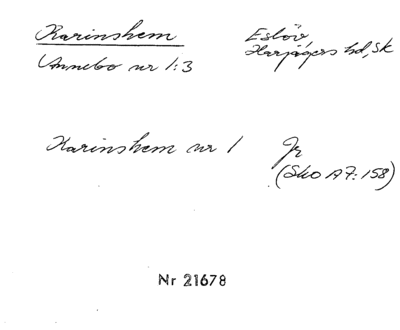 Karinshem Eslöv
Annebo nr 1:3 Harjagers hd, Sk
Karinshem nr 1 Jr
(Sko A7:158)
Nr 21678